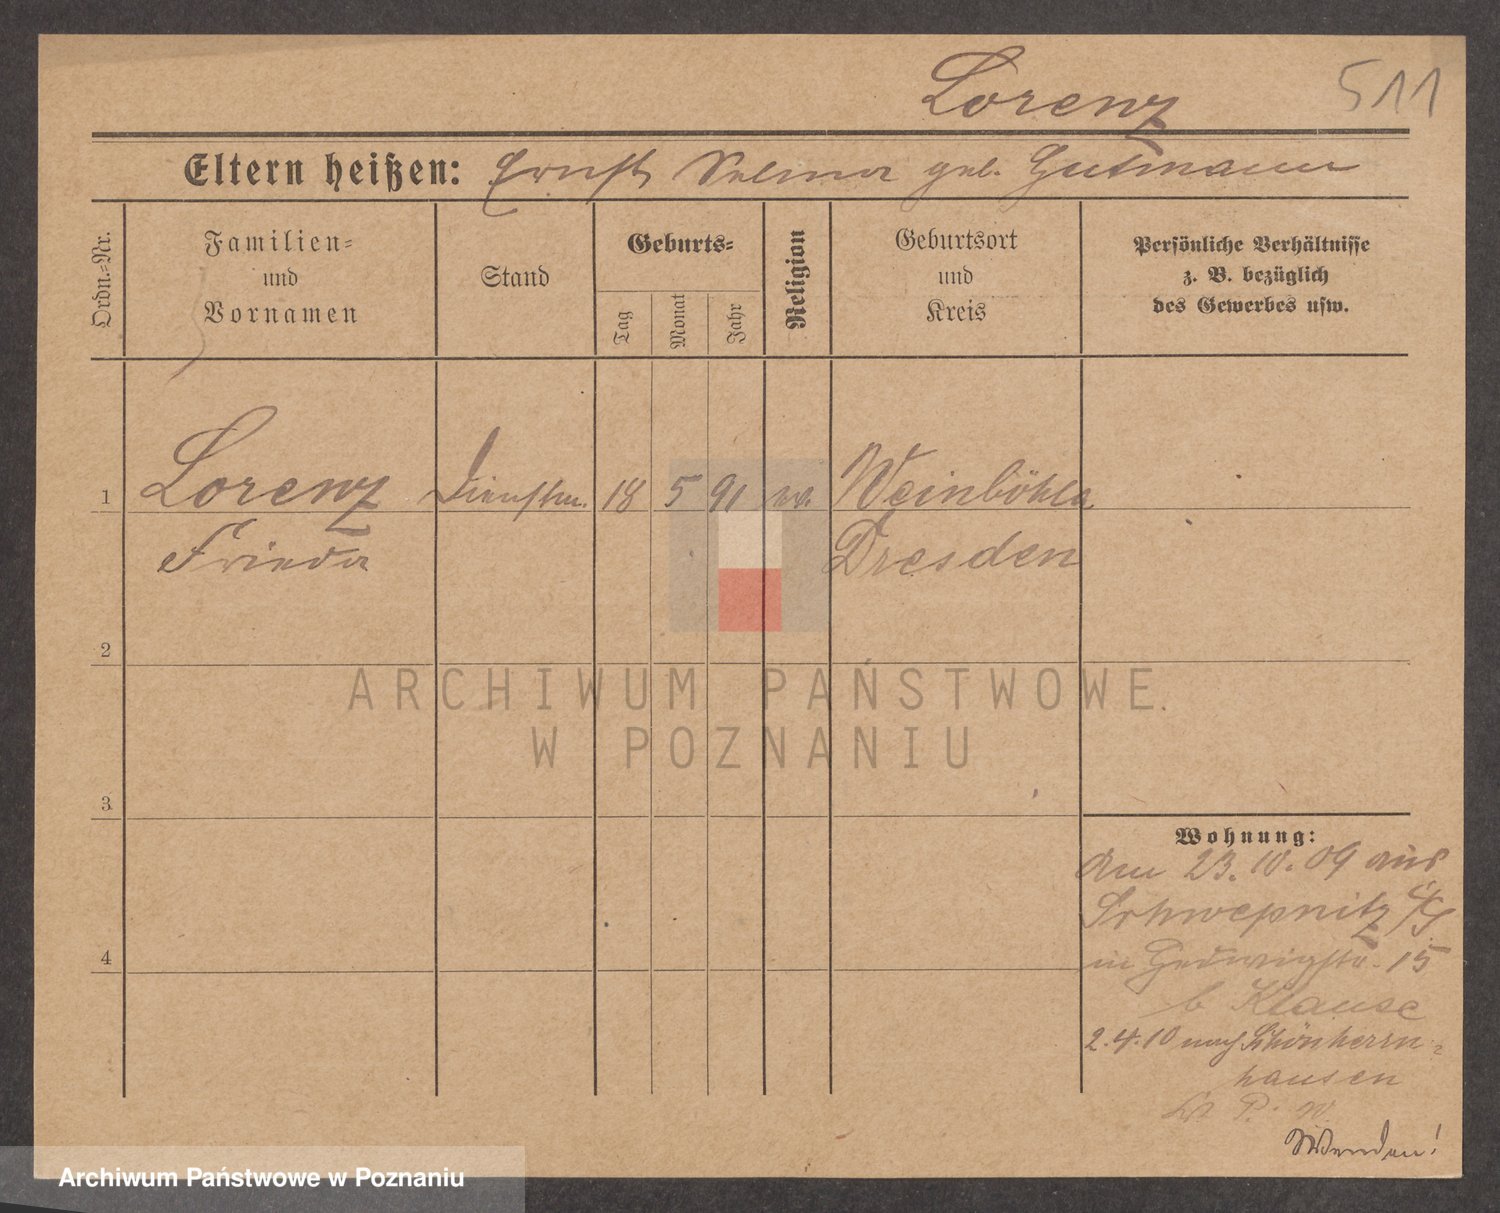 Lorenz 511
Eltern heißen: Ernst Selma geb. Gutmann
Ordn.=Nr.
Familien=
und
Vornamen
Stand
Geburts=
Tag
Monat
Jahr
Religion
Geburtsort
und
Kreis
Persönliche Verhältnisse
z. B. bezüglich
des Gewerbes usw.
1 Lorenz Dienstm. 18 5 91 ev. Weinböhla
Frieda Dresden
2
3
4
ARCHIWUM PAŃSTWOWE
W POZNANIU
Wohnung:
Am 23. 10. 09 aus
Schwepnitz
in Hedwigstr. 15
b Klause
2.4.10 nach Schönherrn-
hausen
P. W.
Wenden!
Archiwum Państwowe w Poznaniu